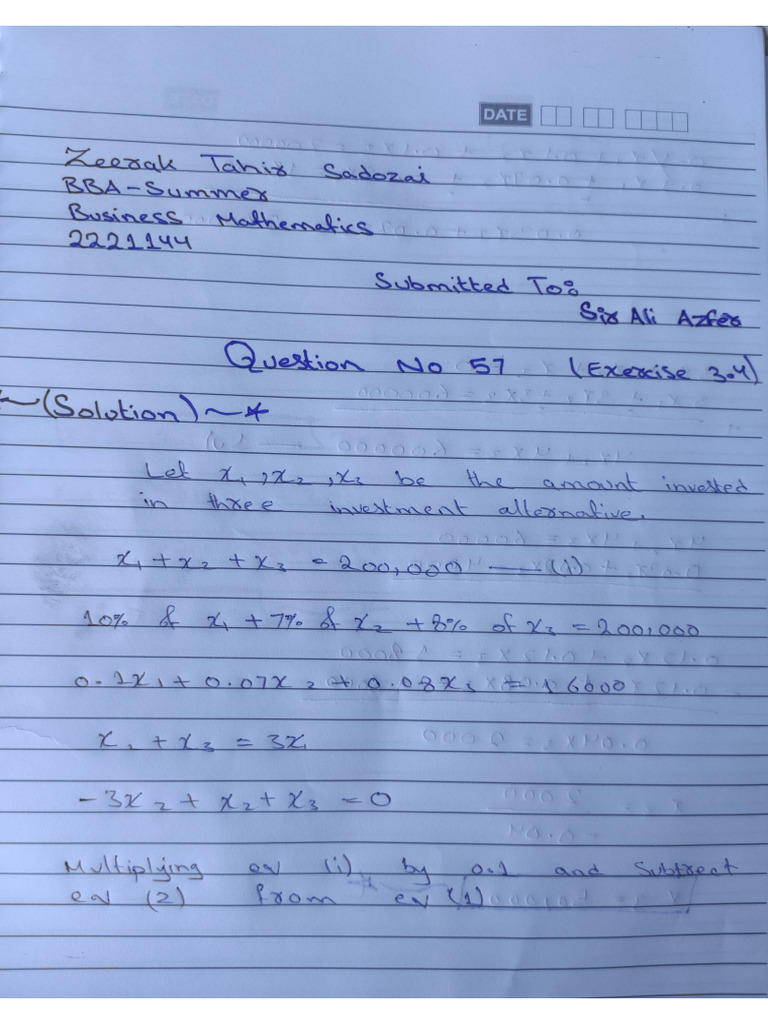 DATE
Zeerak Tahir Sadozai
BBA-Summer
Business Mathematics
2221144
Submitted To:
Sir Ali Azfer
Question No 57 (Exercise 3.4)
~(Solution)~*
Let x₁, x₂, x₃ be the amount invested
in three investment alternative.
x₁ + x₂ + x₃ = 200,000 — (1)
10% of x₁ + 7% of x₂ + 8% of x₃ = 200,000
0.1x₁ + 0.07x₂ + 0.08x₃ = 16000
x₂ + x₃ = 3x₁
-3x₂ + x₂ + x₃ = 0
Multiplying eq (i) by 0.1 and Subtract
eq (2) from eq (1)